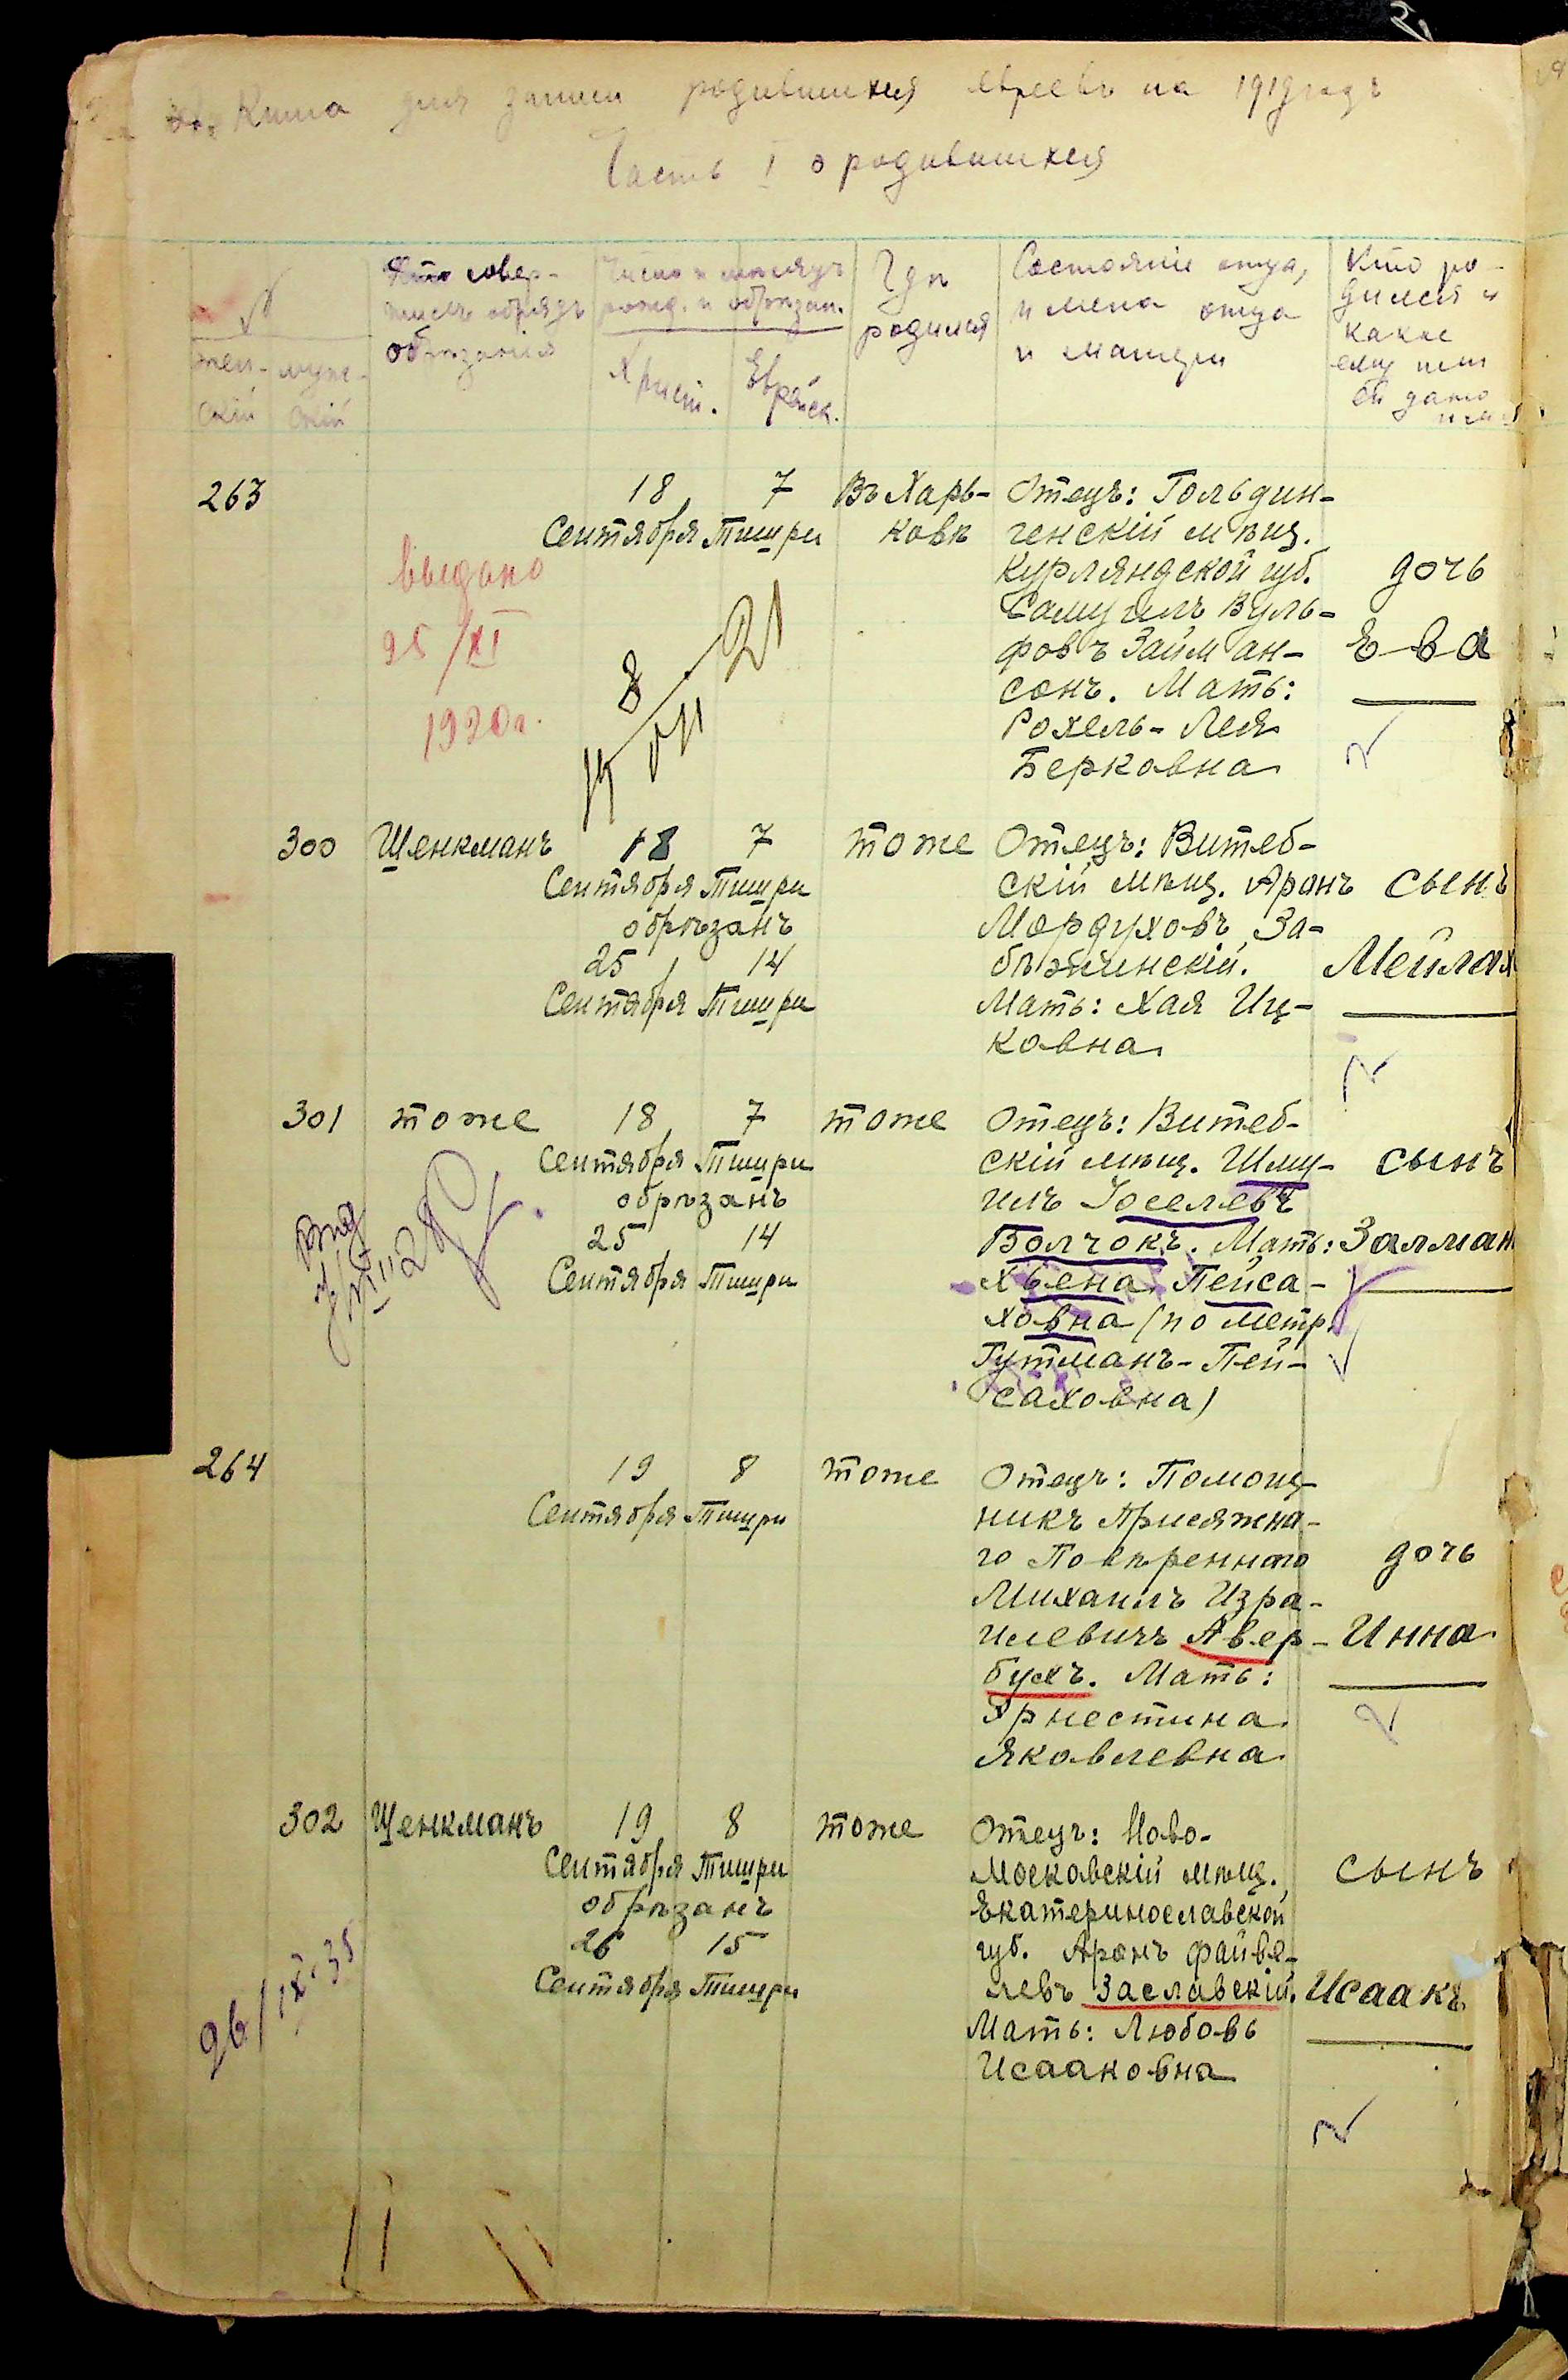 Книга для записи родившихся евреевъ на 1919 годъ
Часть I о родившихся
№
жен-
скій
муже-
скій
Кто совер-
шилъ обрядъ
обрѣзанія
Число и мѣсяцъ
рожд. и обрѣзан.
Христ.
Еврейск.
Гдѣ
родился
Состояніе отца,
имена отца
и матери
Кто ро-
дился и
какое
ему или
ей дано
имя
263
18 7
Сентября Тишри
Въ Харь-
ковѣ
Отецъ: Гольдин-
генскій мѣщ.
Курляндской губ.
Самуилъ Вуль-
фовъ Займан-
сонъ. Мать:
Рохель-Лея
Берковна
дочь
Ева
выдано
25/XI
1920г.
8
21
300 Шенкманъ 18 7 тоже
Сентября Тишри
обрѣзанъ
25 14
Сентября Тишри
Отецъ: Витеб-
скій мѣщ. Аронъ
Мордуховъ За-
бѣжинскій.
Мать: Хая Иц-
ковна
сынъ
Мейлах
301 тоже 18 7 тоже
Сентября Тишри
обрѣзанъ
25 14
Сентября Тишри
Отецъ: Витеб-
скій мѣщ. Шму-
илъ Іоселевъ
Волчокъ. Мать:
Хьена Пейса-
ховна (по метр.
Гутманъ-Пей-
саховна)
сынъ
Залман
264
19 8 тоже
Сентября Тишри
Отецъ: Помощ-
никъ Присяжна-
го Повѣреннаго
Михаилъ Изра-
илевичъ Авер-
бухъ. Мать:
Эрнестина
Яковлевна
дочь
Инна
302 Шенкманъ 19 8 тоже
Сентября Тишри
обрѣзанъ
26 15
Сентября Тишри
Отецъ: Ново-
Московскій мѣщ.
Екатеринославской
губ. Аронъ Файве-
левъ Заславскій.
Мать: Любовь
Исааковна
сынъ
Исаакъ
26/IX-35